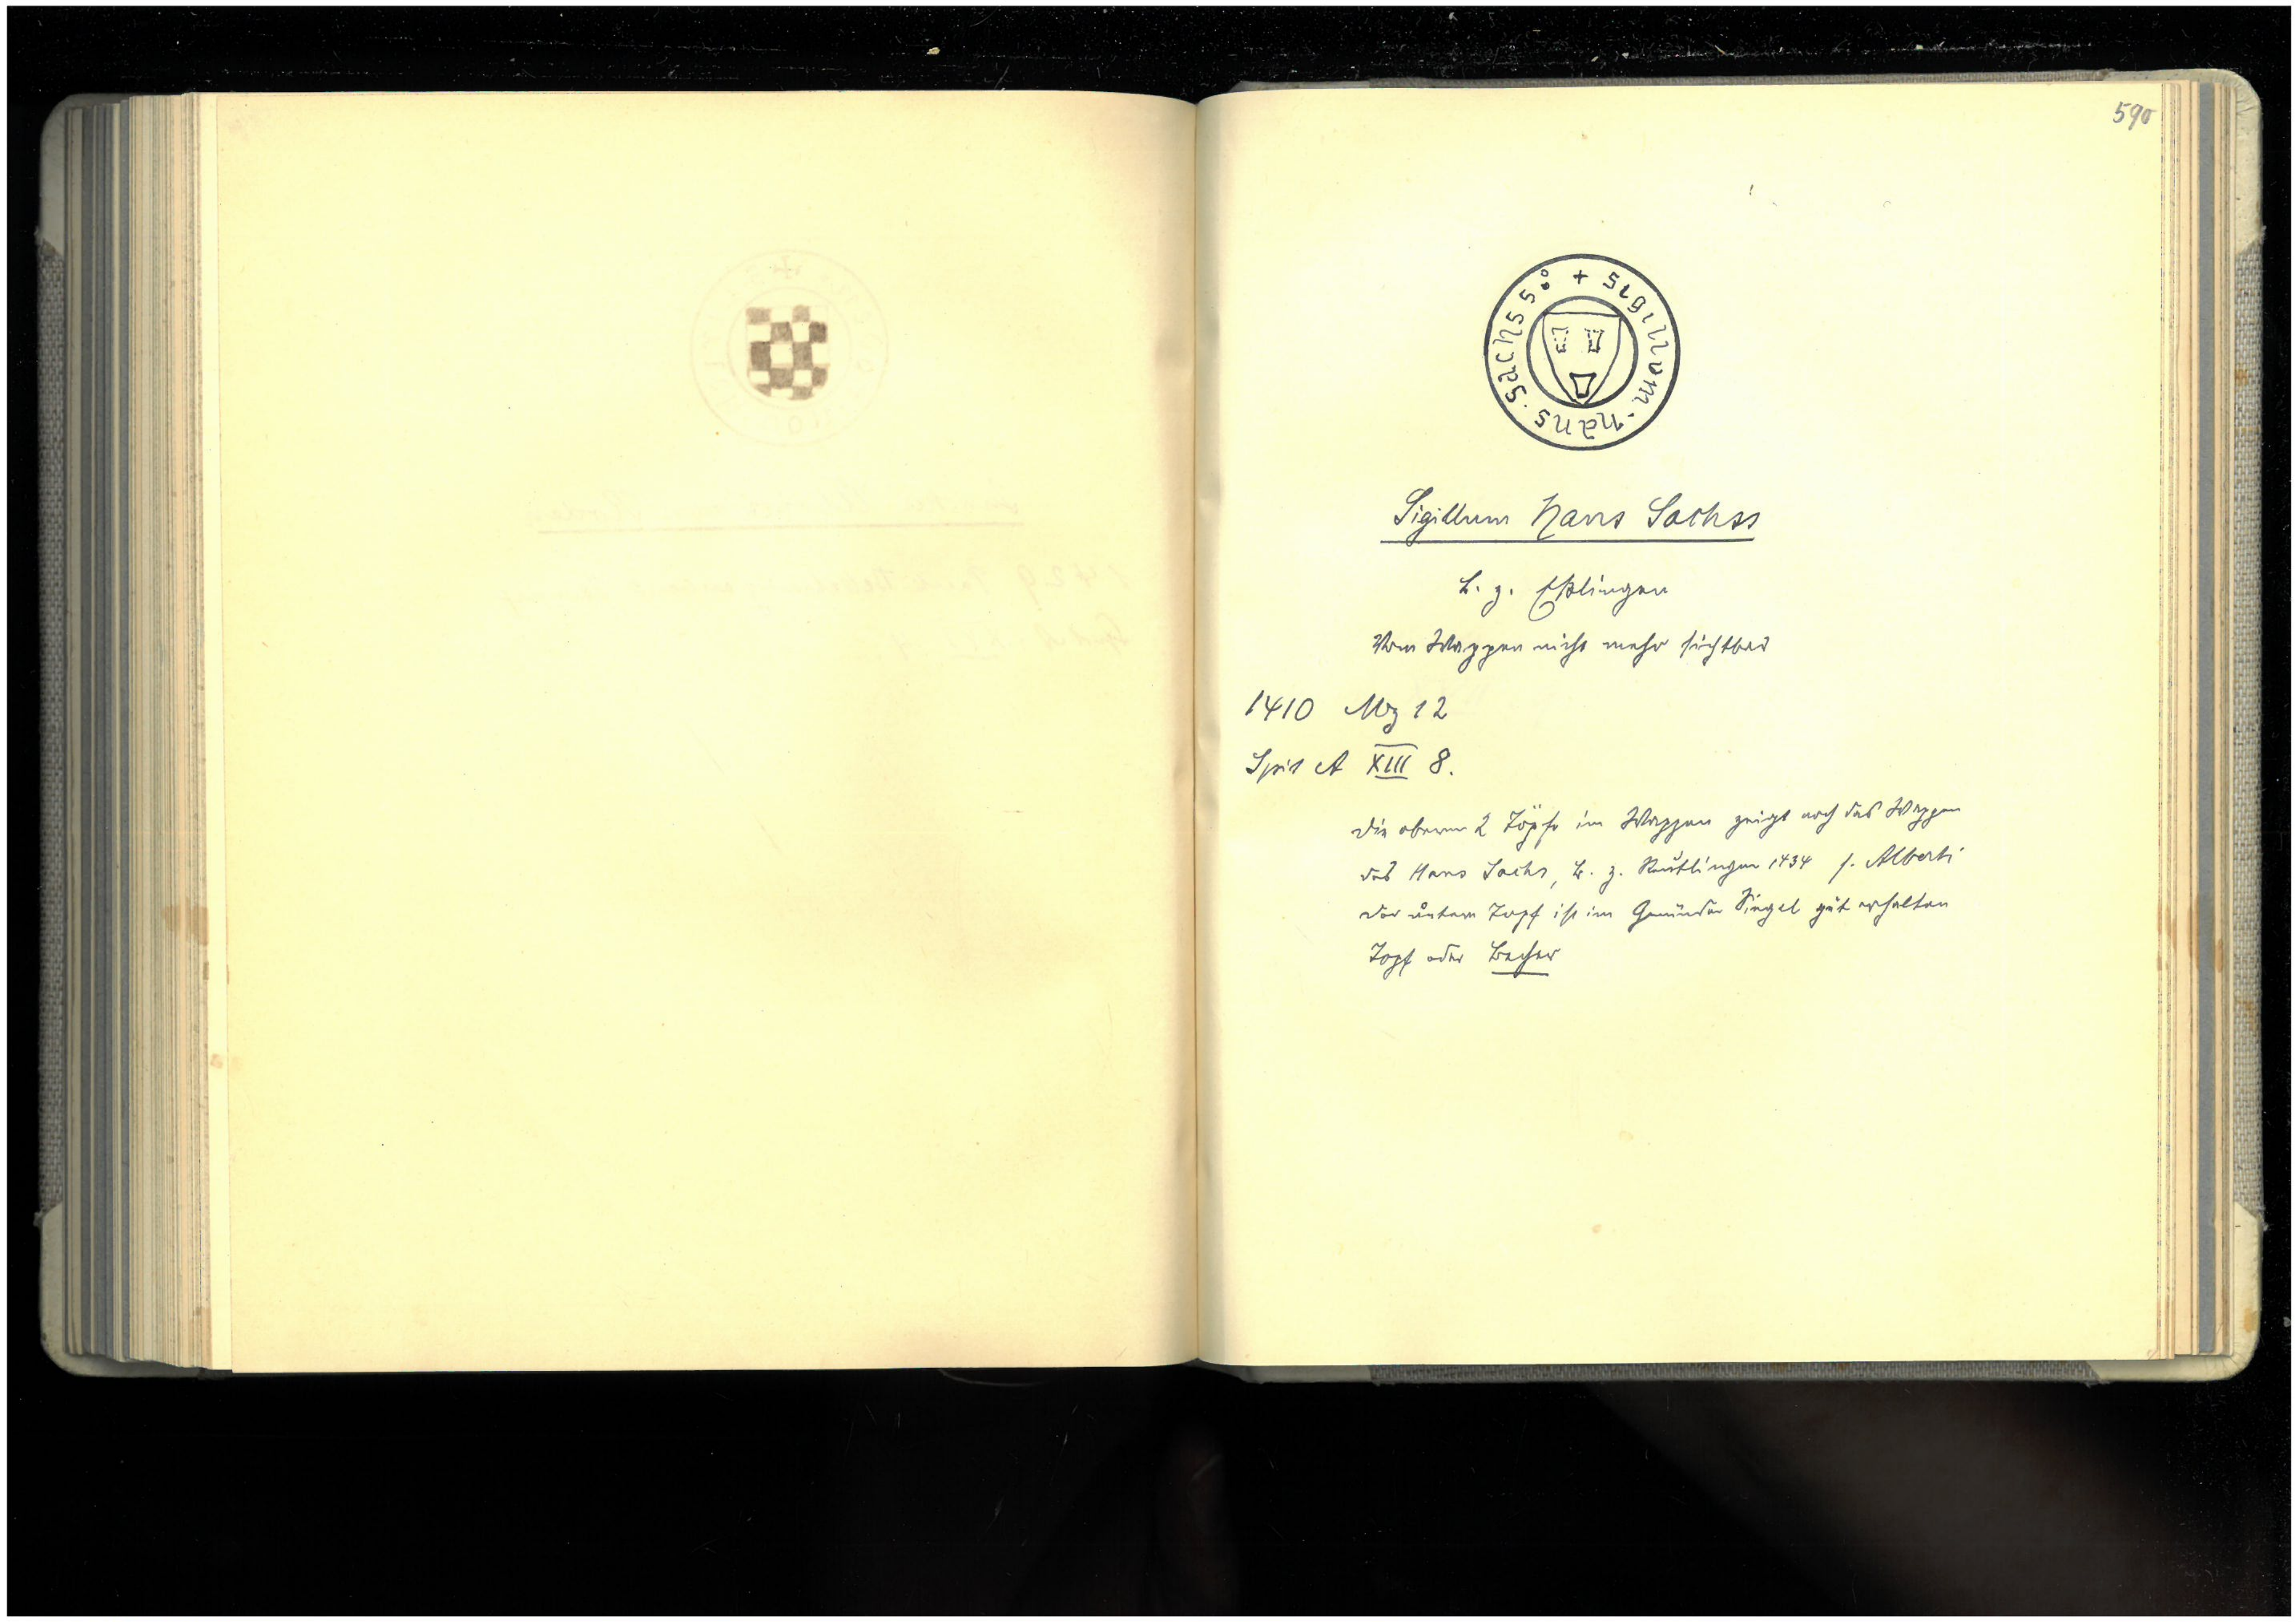 590
+ sigillum · hans · sachss
Sigillum Hans Sachss
B. z. Eßlingen
Vom Wappen nicht mehr sichtbar
1410 Mz 12
Spit A XIII 8.
Die oberen 2 Töpfe im Wappen zeigt noch das Wappen
des Hans Sachs, B. z. Reutlingen 1434 s. Alberti
Der untere Topf ist im Gmünder Siegel gut erhalten
Topf oder Becher